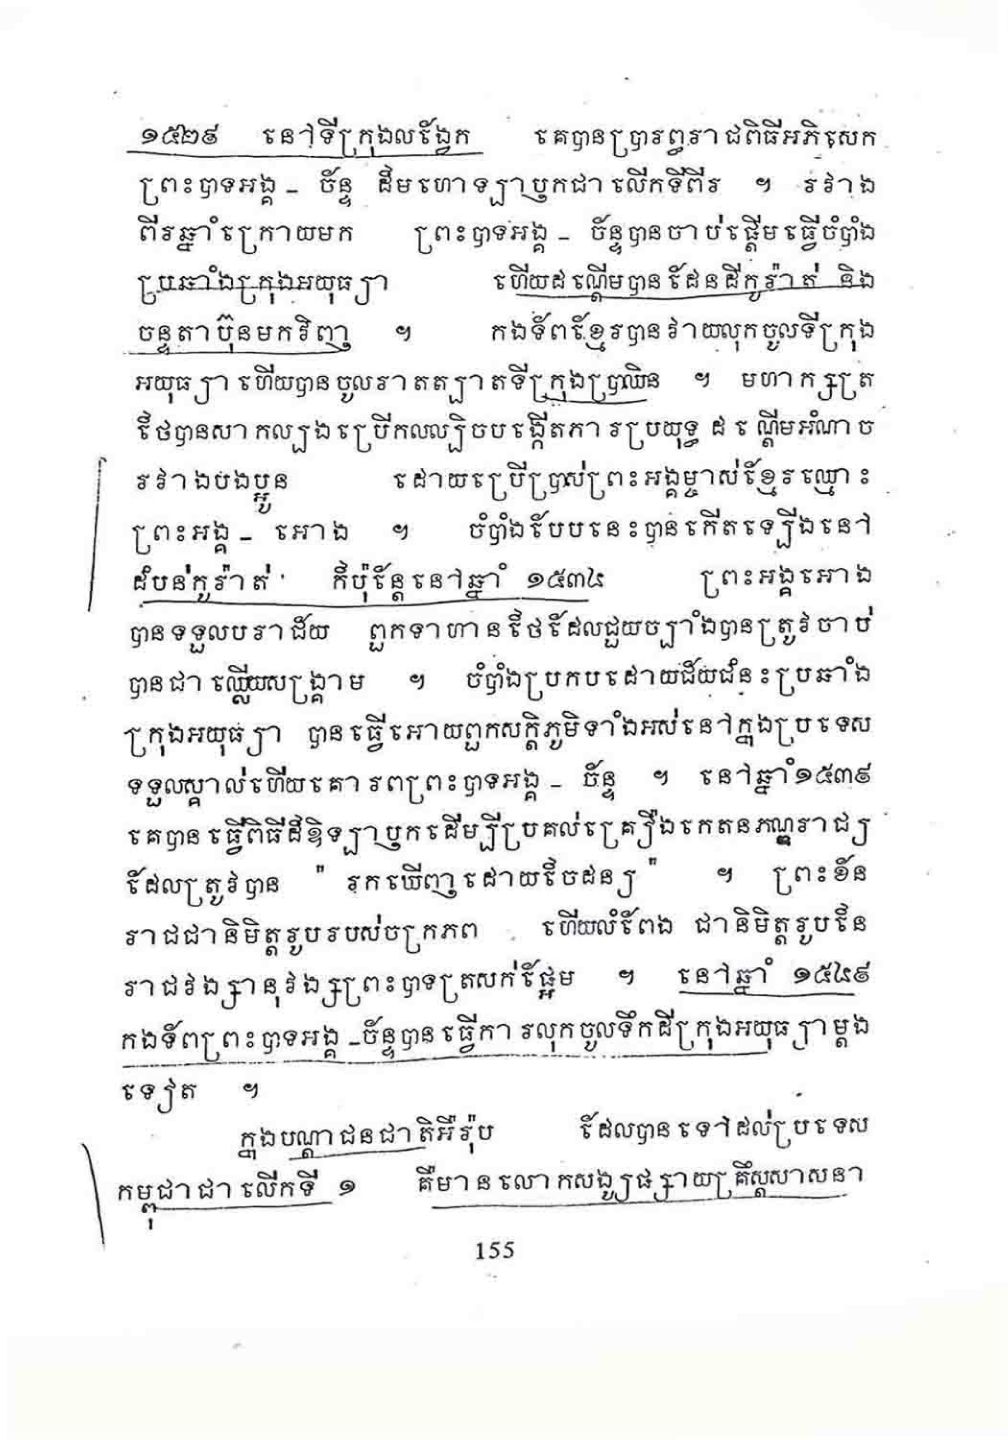 ១៥២៩ នៅទីក្រុងលង្វែក គេបានប្រារព្ធរាជពិធីអភិសេក
ព្រះបាទអង្គ _ ច័ន្ទ ដ៏មហោទ្បាឫកជាលើកទីពីរ ។ រវាង
ពីរឆ្នាំក្រោយមក ព្រះបាទអង្គ _ ច័ន្ទបានចាប់ផ្តើមធ្វើចំបាំង
ប្រឆាំងក្រុងអយុធ្យា ហើយដណ្តើមបានដែនដីកូរ៉ាត់ និង
ចន្ទតាប៊ុនមកវិញ ។ កងទ័ពខ្មែរបានវាយលុកចូលទីក្រុង
អយុធ្យា ហើយបានចូលរាតត្បាតទីក្រុងប្រាឈិន ។ មហាក្សត្រ
ថៃបានសាកល្បងប្រើកលល្បិចបង្កើតការប្រយុទ្ធ ដណ្តើមអំណាច
រវាងបងប្អូន ដោយប្រើប្រាស់ព្រះអង្គម្ចាស់ខ្មែរឈ្មោះ
ព្រះអង្គ _ អោង ។ ចំបាំងបែបនេះបានកើតឡើងនៅ
ដំបន់កូរ៉ាត់ ក៏ប៉ុន្តែនៅឆ្នាំ ១៥៣៤ ព្រះអង្គអោង
បានទទួលបរាជ័យ ពួកទាហានថៃដែលជួយច្បាំងបានត្រូវចាប់
បានជាឈ្លើយសង្គ្រាម ។ ចំបាំងប្រកបដោយជ័យជំនះប្រឆាំង
ក្រុងអយុធ្យា បានធ្វើអោយពួកសក្តិភូមិទាំងអស់នៅក្នុងប្រទេស
ទទួលស្គាល់ហើយគោរពព្រះបាទអង្គ _ ច័ន្ទ ។ នៅឆ្នាំ១៥៣៩
គេបានធ្វើពិធីដ៏ឱឡាឫកដើម្បីប្រគល់គ្រឿងកេតនភណ្ឌរាជ្យ
ដែលត្រូវបាន " រកឃើញដោយចៃដន្យ " ។ ព្រះខ័ន
រាជជានិមិត្តរូបរបស់ចក្រភព ហើយលំពែង ជានិមិត្តរូបនៃ
រាជវង្សានុវង្សព្រះបាទត្រសក់ផ្អែម ។ នៅឆ្នាំ ១៥៤៩
កងទ័ពព្រះបាទអង្គ _ច័ន្ទបានធ្វើការលុកចូលទឹកដីក្រុងអយុធ្យាម្តង
ទៀត ។
ក្នុងបណ្តាជនជាតិអឺរ៉ុប ដែលបានទៅដល់ប្រទេស
កម្ពុជាជាលើកទី ១ គឺមានលោកសង្ឃផ្សាយគ្រឹស្តសាសនា
155